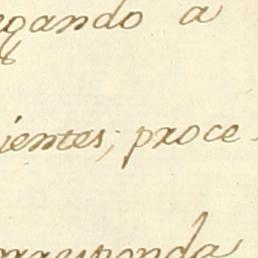 egando a
ientes; proce-
orresponda